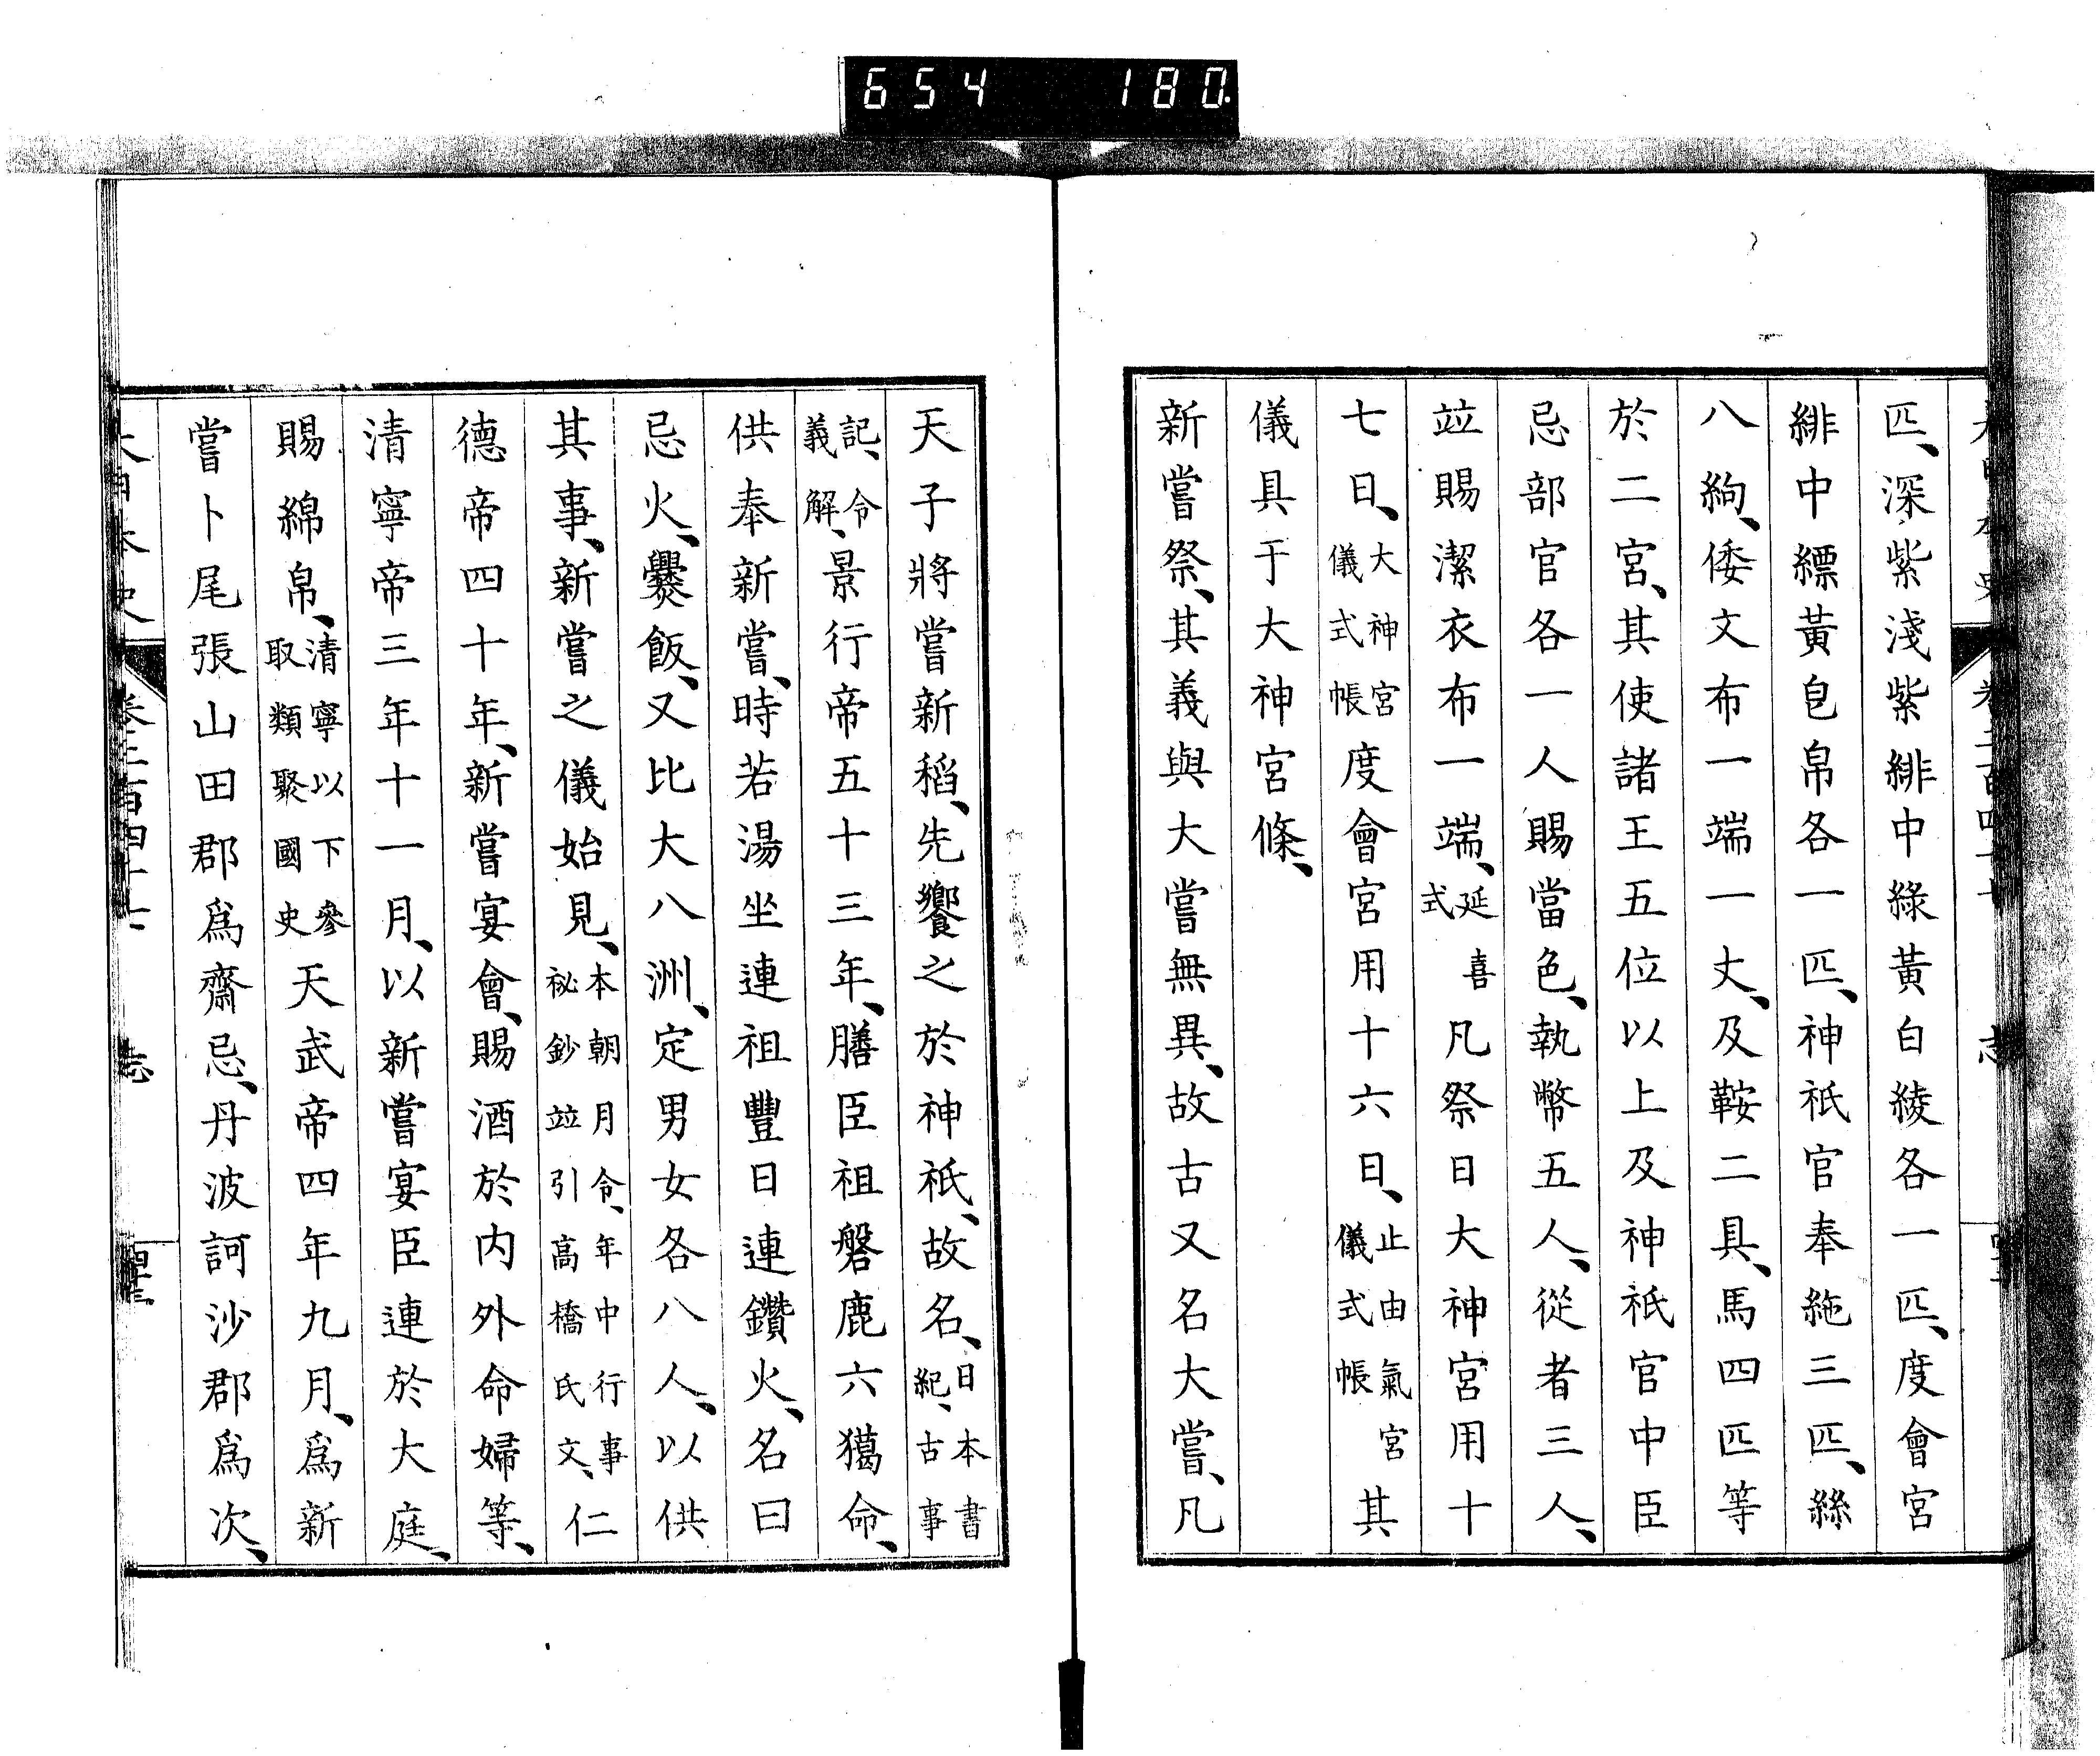 654 180
匹、深紫淺紫緋中綠黃白綾各一匹、度會宮
緋中縹黃皀帛各一匹、神祇官奉絁三匹、絲
八絇、倭文布一端一丈、及鞍二具、馬四匹等
於二宮、其使諸王五位以上及神祇官中臣
忌部官各一人賜當色、執幣五人、從者三人、
竝賜潔衣布一端、延喜式凡祭日大神宮用十
七日、大神宮儀式帳度會宮用十六日、止由氣宮儀式帳其
儀具于大神宮條、
新嘗祭、其義與大嘗無異、故古又名大嘗、凡
天子將嘗新稻、先饗之於神祇、故名、日本書紀、古事
記、令義解、景行帝五十三年、膳臣祖磐鹿六獦命、
供奉新嘗、時若湯坐連祖豐日連鑽火、名曰
忌火、爨飯、又比大八洲、定男女各八人、以供
其事、新嘗之儀始見、本朝月令、年中行事祕鈔竝引高橋氏文、仁
德帝四十年、新嘗宴會、賜酒於內外命婦等、
清寧帝三年十一月、以新嘗宴臣連於大庭、
賜綿帛、清寧以下參取類聚國史天武帝四年九月、爲新
嘗卜尾張山田郡爲齋忌、丹波訶沙郡爲次、
大日本史 卷二百四十七 志